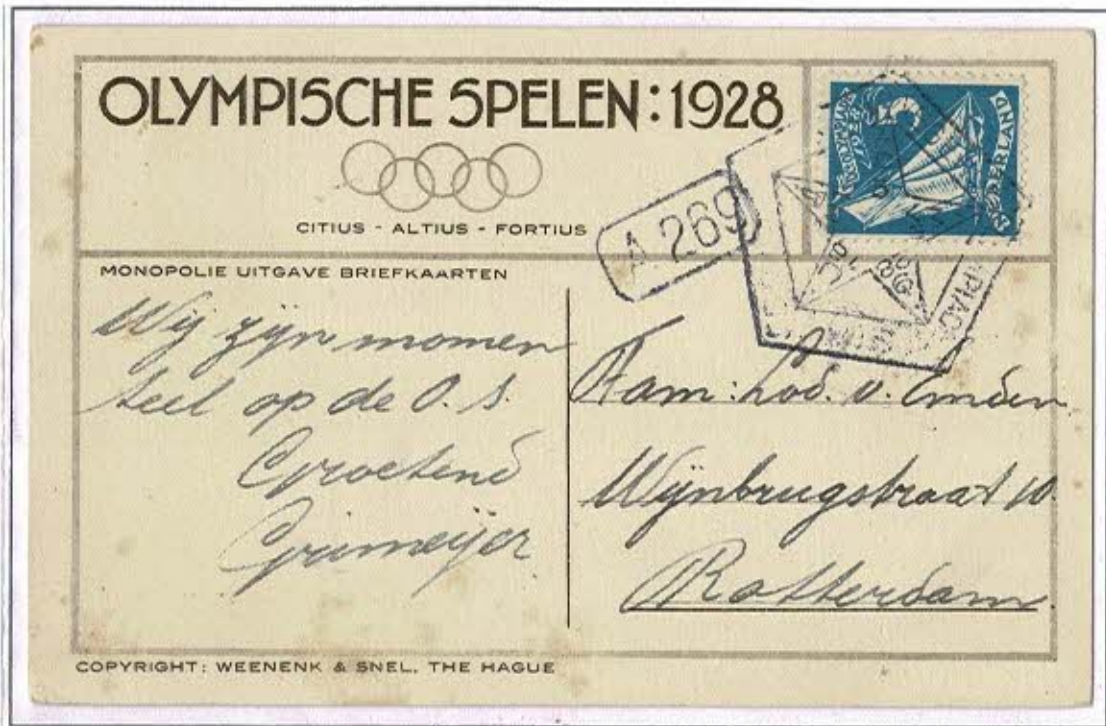 OLYMPISCHE SPELEN : 1928
CITIUS - ALTIUS - FORTIUS
MONOPOLIE UITGAVE BRIEFKAARTEN
A 269
NEDERLAND
Wij zijn momen
teel op de O. S.
Groetend
Grimeijer
Fam: Lod. v. Emden
Wijnbrugstraat 10
Rotterdam
COPYRIGHT: WEENENK & SNEL. THE HAGUE